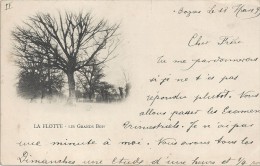 Cher Frère
Tu me pardonneras
si je ne t'ai pas
répondu plutôt. Nous
allons passer les Examens
LA FLOTTE - Les Grands Bois
trimestriels. Je n'ai pas
une minute à moi. Nous avons tous les
Dimanches une étude d'une heure et